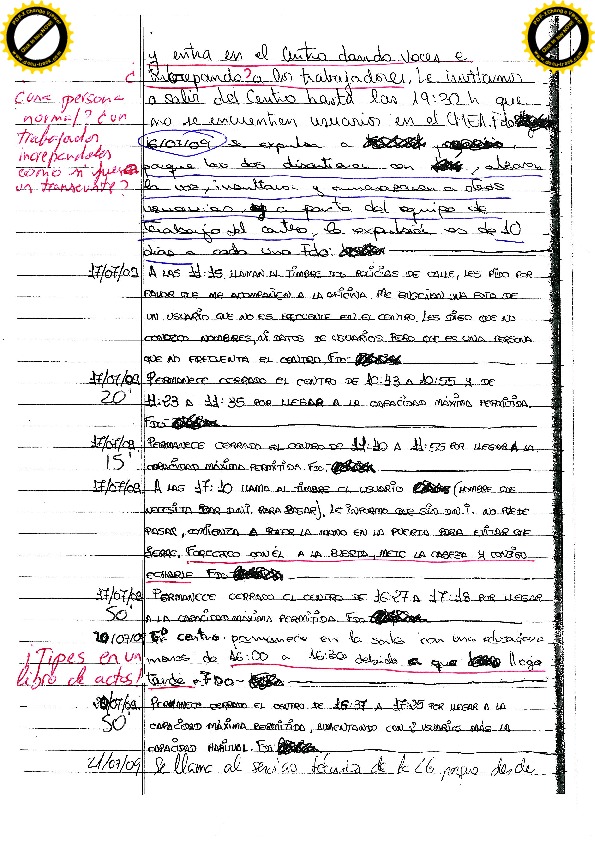 y entra en el Centro dando voces e
increpando? a los trabajadores. Le invitamos
a salir del Centro hasta las 19:30 h que
no se encuentren usuarios en el CMEA. Fdo
Como persona
normal? o un
trabajador
increpandolos
como si fuera
un transeunte?
16/07/09 Se expulsa a
porque los dos discutieron con , alzaron
la voz, insultaron y amenazaron a otros
usuarios y a parte del equipo de
trabajo del centro, la expulsión es de 10
días a cada uno Fdo:
17/07/09 A LAS 11:15 LLAMAN AL TIMBRE DOS POLICIAS DE CALLE, LES PIDO POR
FAVOR QUE ME ACOMPAÑEN A LA OFICINA. ME ENSEÑAN UNA FOTO DE
UN USUARIO QUE NO ES FRECUENTE EN EL CENTRO. LES DIGO QUE NO
CONOZCO NOMBRES, NI DATOS DE USUARIOS PERO QUE ES UNA PERSONA
QUE NO FRECUENTA EL CENTRO. FDO:
17/07/09 PERMANECE CERRADO EL CENTRO DE 10:43 A 10:55 Y DE
20' 11:23 A 11:35 POR LLEGAR A LA CAPACIDAD MÁXIMA PERMITIDA.
FDO:
17/07/09 PERMANECE CERRADO EL CENTRO DE 11:40 A 11:55 POR LLEGAR A LA
15' CAPACIDAD MÁXIMA PERMITIDA. FDO:
17/07/09 A LAS 17:10 LLAMA AL TIMBRE EL USUARIO (HOMBRE QUE
NECESITA D.N.I. PARA PASAR). LE INFORMO QUE SIN D.N.I. NO PUEDE
PASAR, COMIENZA A PONER LA MANO EN LA PUERTA PARA EVITAR QUE
CIERRE. FORCEJEO CON ÉL A LA PUERTA, METE LA CABEZA Y CONSIGO
ECHARLE FDO:
17/07/09 PERMANECE CERRADO EL CENTRO DE 16:27 A 17:18 POR LLEGAR
50' A LA CAPACIDAD MÁXIMA PERMITIDA. FDO:
20/07/09 El centro permanece en la sala con una educadora
¡Tipes en un
libro de actas!
menos de 16:00 a 16:30 debido a que llega
tarde. FDO:
20/07/09 PERMANECE CERRADO EL CENTRO DE 16:37 A 17:25 POR LLEGAR A LA
50' CAPACIDAD MÁXIMA PERMITIDA, AUMENTANDO CON 2 USUARIOS MÁS LA
CAPACIDAD HABITUAL. FDO:
21/07/09 Se llama al servicio técnico de la porque desde